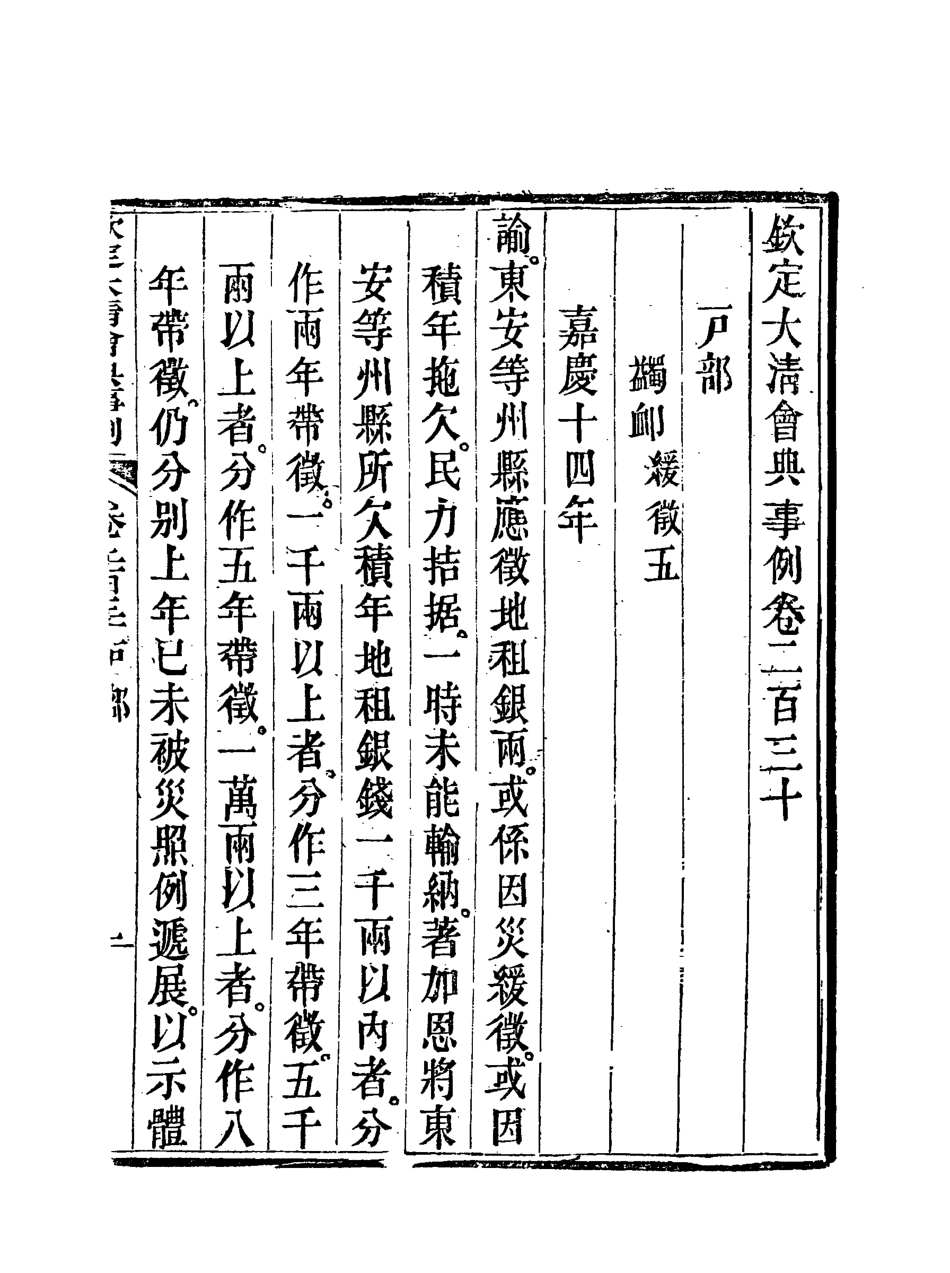 欽定大清會典事例卷二百三十
戸部
蠲卹 緩徵五
嘉慶十四年
諭。東安等州縣應徵地租銀兩。或係因災緩徵。或因
積年拖欠。民力拮据。一時未能輸納。著加恩將東
安等州縣所欠積年地租銀錢一千兩以內者。分
作兩年帶徵。一千兩以上者。分作三年帶徵。五千
兩以上者。分作五年帶徵。一萬兩以上者。分作八
年帶徵。仍分別上年已未被災照例遞展。以示體
欽定大清會典事例 卷二百三十 戸部 一